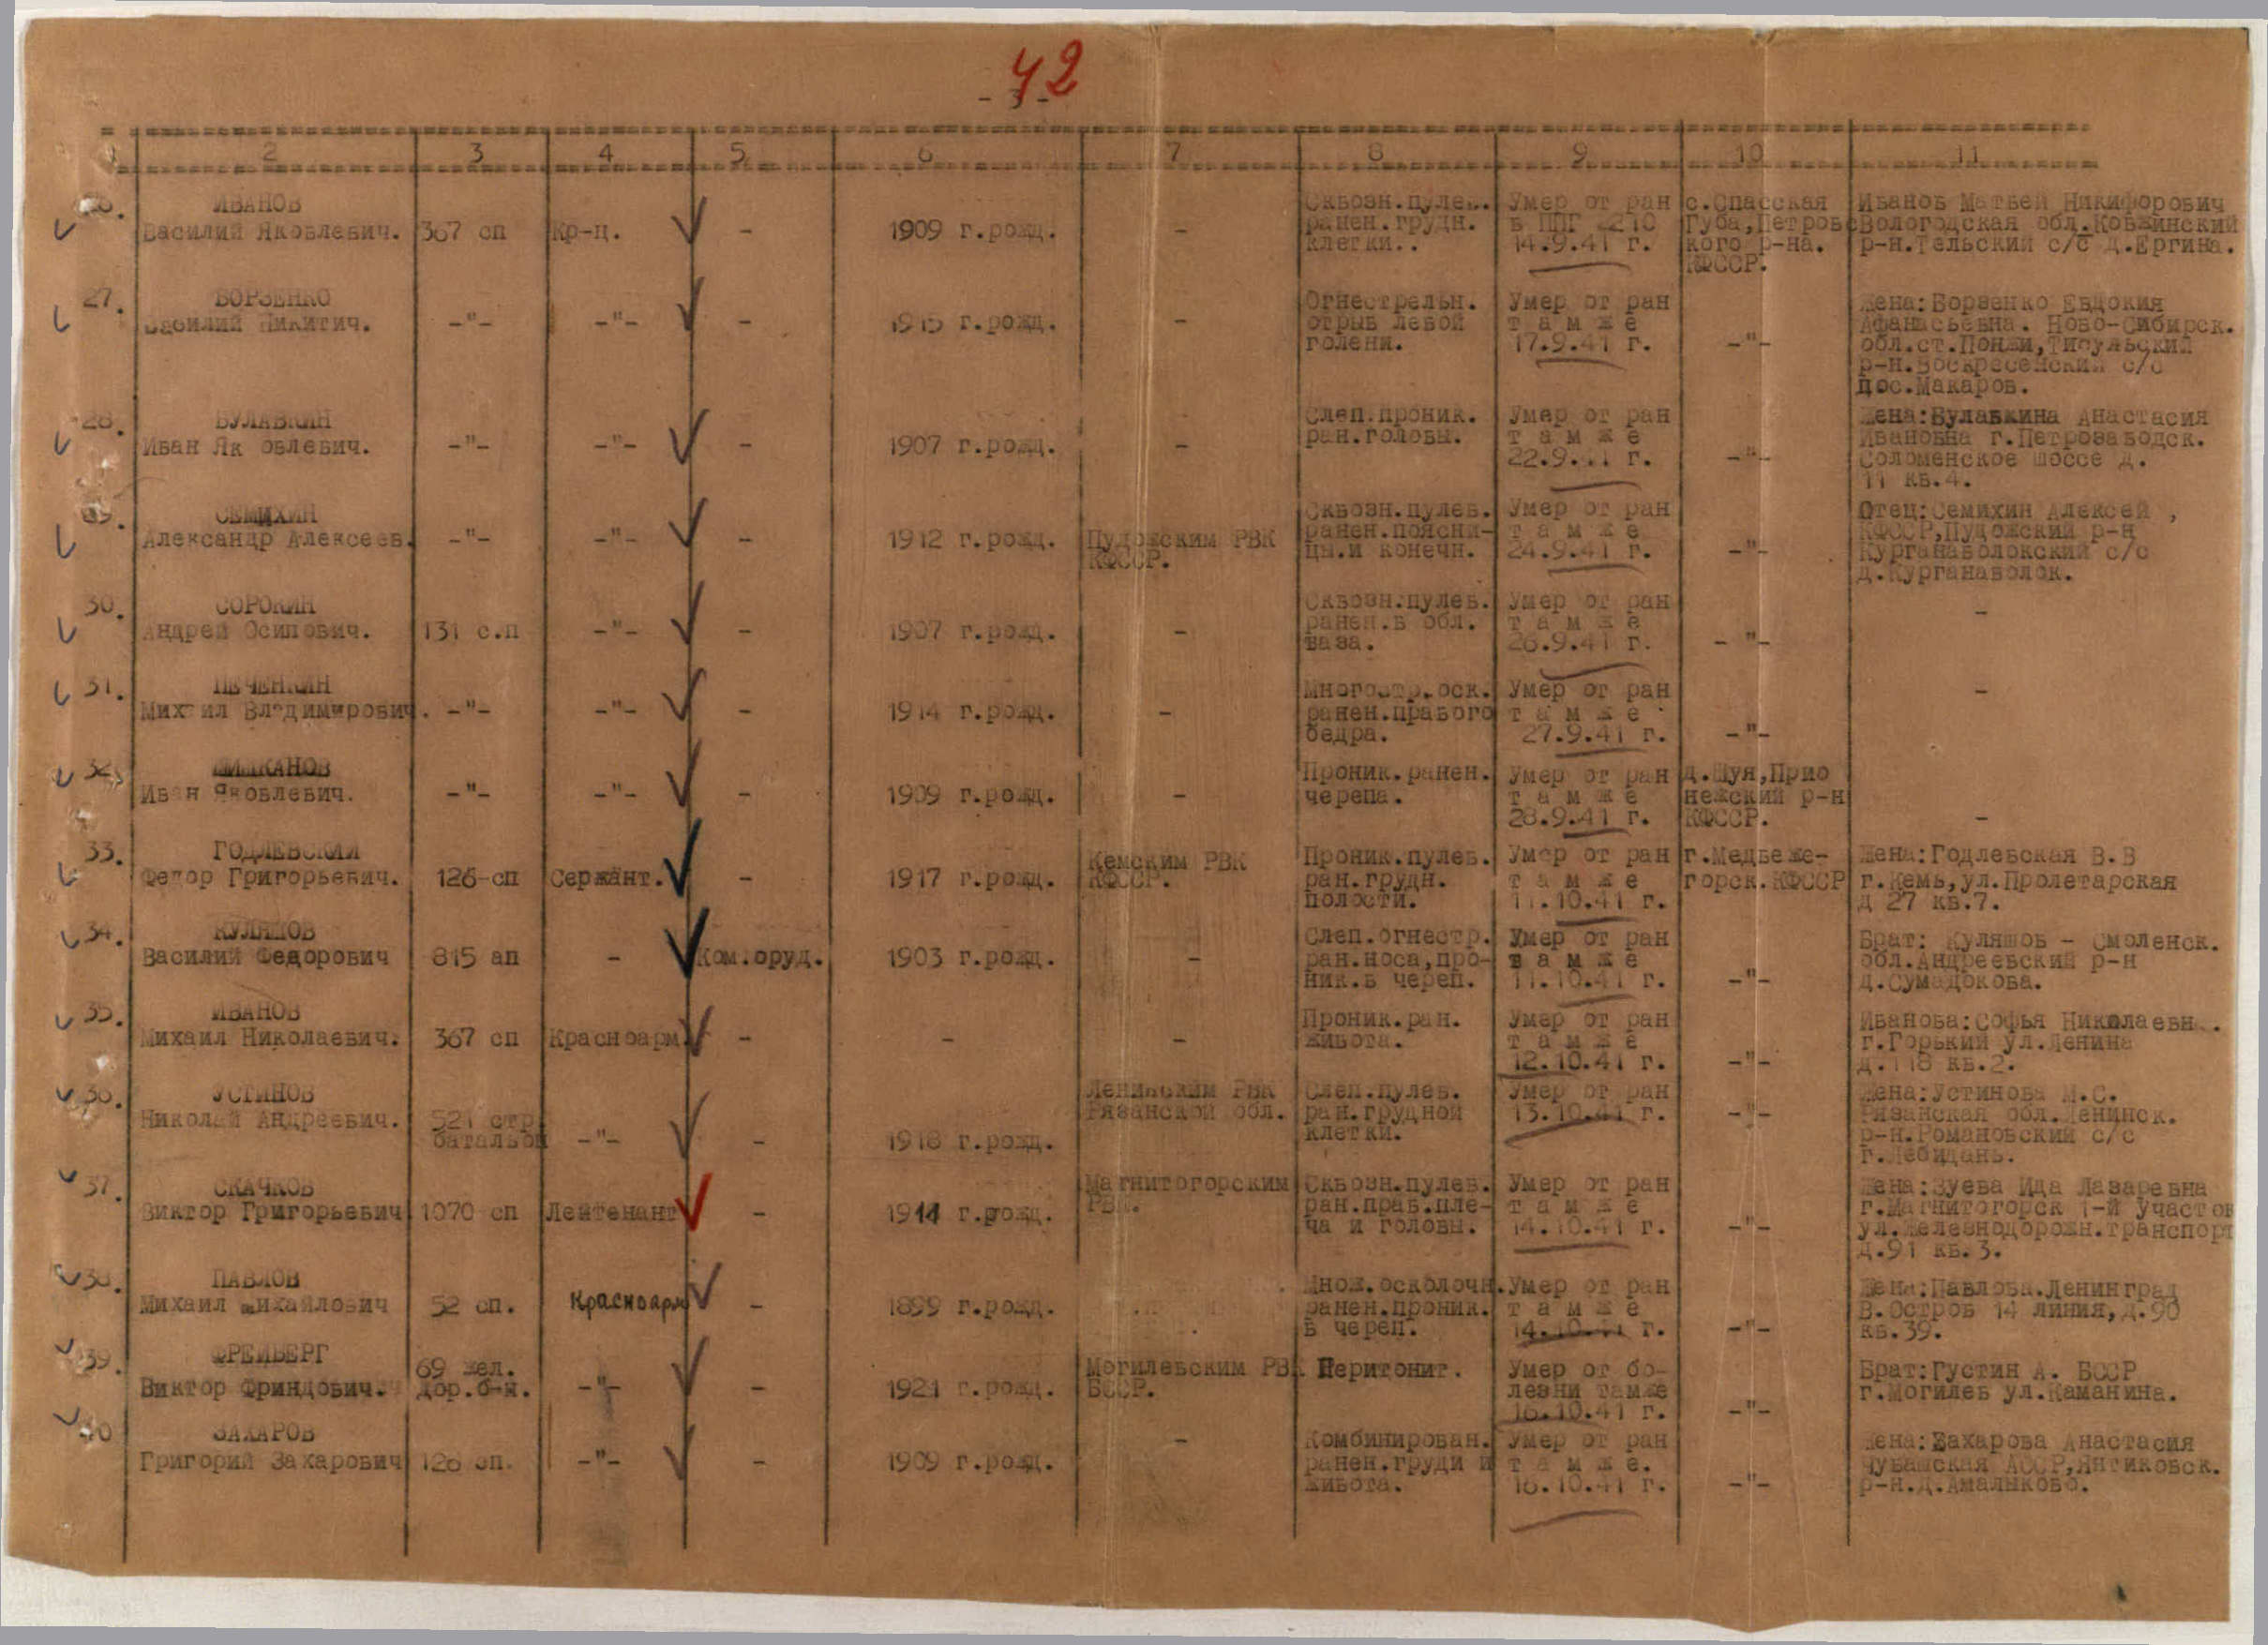 42
- 3 -
2 3 4 5 6 7 8 9 10 11
26. ИВАНОВ
Василий Яковлевич. 367 сп Кр-ц. - 1909 г.рожд. -
Сквозн.пулев.
ранен.грудн.
клетки..
Умер от ран
в ППГ 2210
14.9.41 г.
с.Спасская
Губа,Петровс
кого р-на.
КФССР.
Иванов Матвей Никифорович
Вологодская обл.Ковжинский
р-н.Тельский с/с д.Ергина.
27. БОРЗЕНКО
Василий Никитич. -"- -"- - 1915 г.рожд. -
Огнестрельн.
отрыв левой
голени.
Умер от ран
т а м ж е
17.9.41 г.
-"-
Жена:Борзенко Евдокия
Афанасьевна. Ново-Сибирск.
обл.ст.Понжи,Тисульский
р-н.Воскресенский с/с
пос.Макаров.
28. БУЛАВКИН
Иван Як овлевич. -"- -"- - 1907 г.рожд. -
Слеп.проник.
ран.головы.
Умер от ран
т а м ж е
22.9.41 г.
-"-
Жена:Булавкина Анастасия
Ивановна г.Петрозаводск.
Соломенское шоссе д.
11 кв.4.
29. СЕМИХИН
Александр Алексеев. -"- -"- - 1912 г.рожд.
Пудожским РВК
КФССР.
Сквозн.пулев.
ранен.поясни-
цы.и конечн.
Умер от ран
т а м ж е
24.9.41 г.
-"-
Отец:Семихин Алексей ,
КФССР,Пудожский р-н
Курганаволокский с/с
д.Курганаволок.
30. СОРОКИН
Андрей Осипович. 131 с.п -"- - 1907 г.рожд. -
Сквозн.пулев.
ранен.в обл.
таза.
Умер от ран
т а м ж е
26.9.41 г.
-"-
-
31. ПЕЧЕНКИН
Михаил Владимирович. -"- -"- - 1914 г.рожд. -
Многостр.оск.
ранен.правого
бедра.
Умер от ран
т а м ж е
27.9.41 г.
-"-
-
32. ШИШКАНОВ
Иван Яковлевич. -"- -"- - 1909 г.рожд. -
Проник.ранен.
черепа.
Умер от ран
т а м ж е
28.9.41 г.
д.Шуя,Прио
нежский р-н
КФССР.
-
33. ГОДЛЕВСКИЙ
Федор Григорьевич. 126-сп Сержант. - 1917 г.рожд.
Кемским РВК
КФССР.
Проник.пулев.
ран.грудн.
полости.
Умер от ран
т а м ж е
11.10.41 г.
г.Медвеже-
горск.КФССР
Жена:Годлевская В.В
г.Кемь,ул.Пролетарская
д 27 кв.7.
34. КУЛЯШОВ
Василий Федорович 815 ап - Ком.оруд. 1903 г.рожд. -
Слеп.огнестр.
ран.носа,про-
ник.в череп.
Умер от ран
т а м ж е
11.10.41 г.
-"-
Брат: Куляшов - Смоленск.
обл.Андреевский р-н
д.Сумадокова.
35. ИВАНОВ
Михаил Николаевич. 367 сп Красноарм - - -
Проник.ран.
живота.
Умер от ран
т а м ж е
12.10.41 г.
-"-
Иванова:Софья Николаевн .
г.Горький ул.Ленина
д.118 кв.2.
36. УСТИНОВ
Николай Андреевич. 521 стр
батальон -"- - 1918 г.рожд.
Ленинским РВК
Рязанской обл.
Слеп.пулев.
ран.грудной
клетки.
Умер от ран
13.10.41 г.
-"-
Жена:Устинова М.С.
Рязанская обл.Ленинск.
р-н.Романовский с/с
г.Лебидань.
37. СКАЧКОВ
Виктор Григорьевич 1070 сп Лейтенант - 1914 г.рожд.
Магнитогорским
РВК.
Сквозн.пулев.
ран.прав.пле-
ча и головы.
Умер от ран
т а м ж е
14.10.41 г.
-"-
Жена:Зуева Ида Лазаревна
г.Магнитогорск 1-й участок
ул.Железнодорожн.транспорт
д.91 кв.3.
38. ПАВЛОВ
Михаил Михайлович 52 сп. Красноарм - 1899 г.рожд.
Множ.осколочн.
ранен.проник.
в череп.
Умер от ран
т а м ж е
14.10.41 г.
-"-
Жена:Павлова.Ленинград
В.Остров 14 линия,д.90
кв.39.
39. ФРЕЙБЕРГ
Виктор Фриндович. 69 жел.
дор.б-н. -"- - 1921 г.рожд.
Могилевским РВК
БССР.
Перитонит.
Умер от бо-
лезни тамже
16.10.41 г.
-"-
Брат:Густин А. БССР
г.Могилев ул.Каманина.
40 ЗАХАРОВ
Григорий Захарович 126 сп. -"- - 1909 г.рожд. -
Комбинирован.
ранен.груди и
живота.
Умер от ран
т а м ж е.
16.10.41 г.
-"-
Жена:Захарова Анастасия
Чувашская АССР,Янтиковск.
р-н.д.Амалыково.